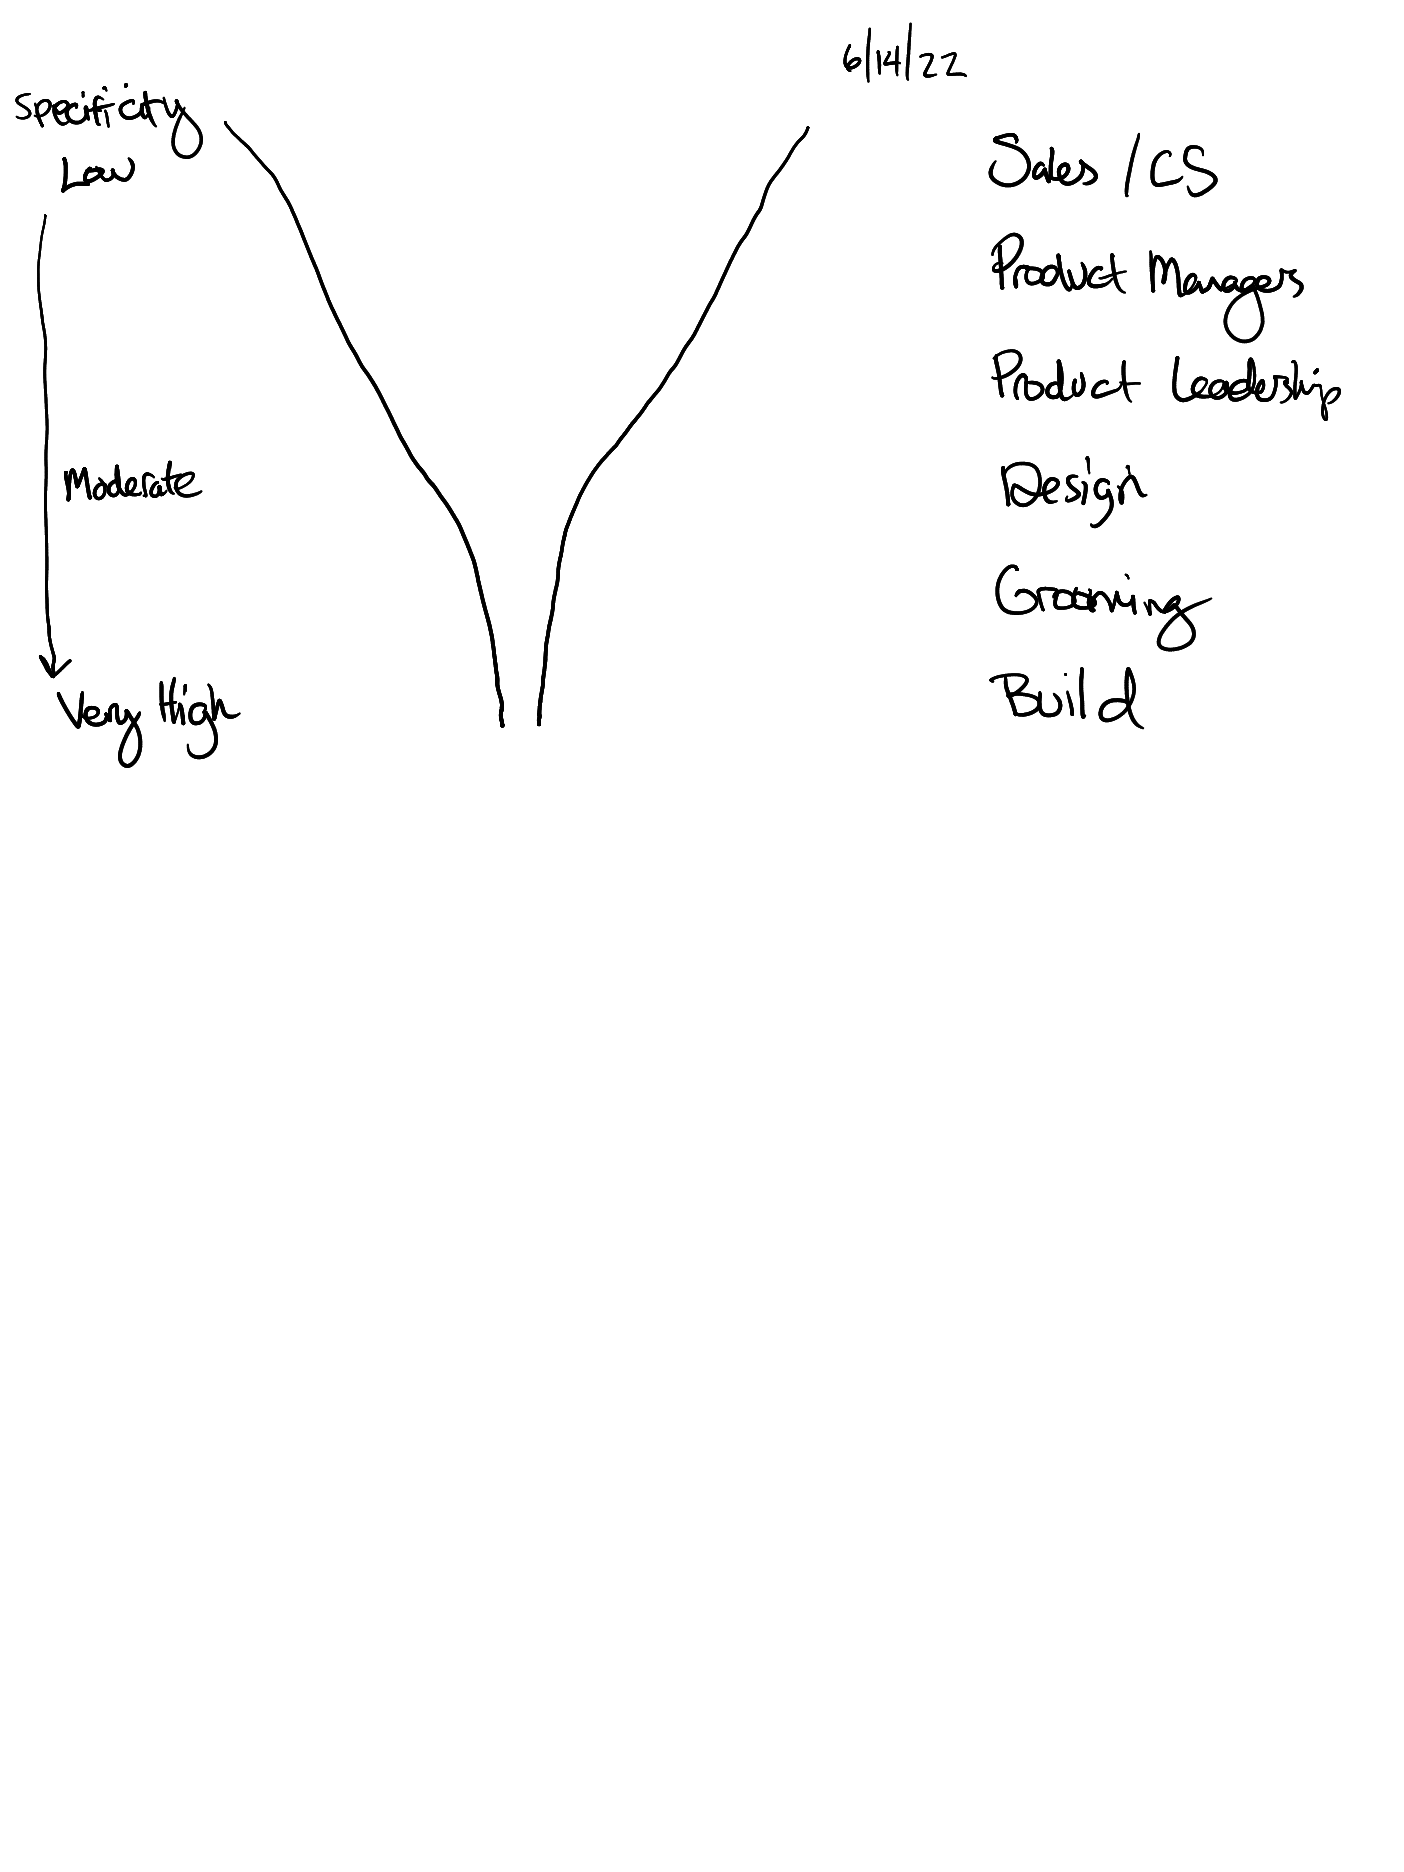 6/14/22
Specificity
Low
Moderate
Very High
Sales / CS
Product Managers
Product Leadership
Design
Grooming
Build